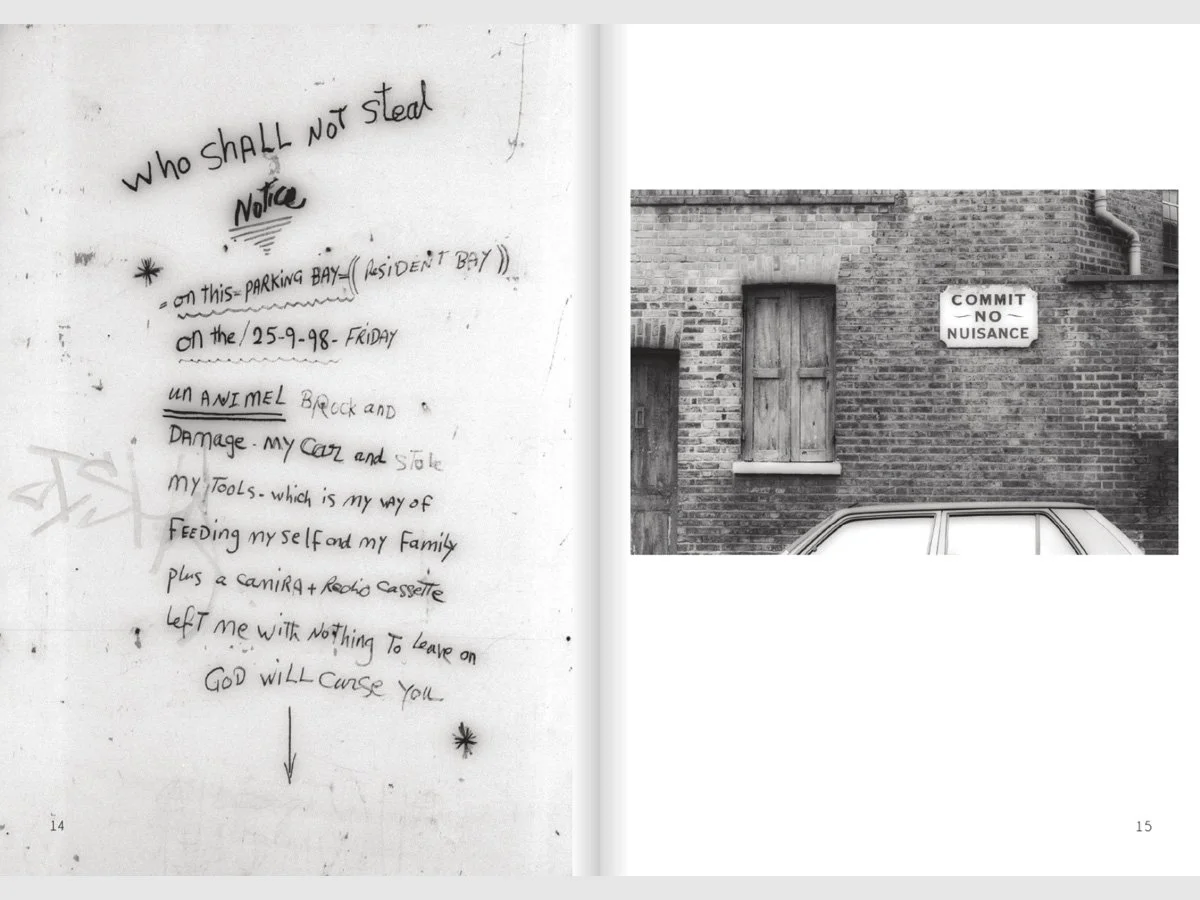 who SHALL NOT Steal
Notice
on this= PARKING BAY=(( RESIDENT BAY ))
on the / 25-9-98- FRIDAY
un ANIMEL BRock and
DAmage - my Car and stole
my Tools - which is my way of
FEEDing my self and my Family
plus a camiRA + Radio cassette
LefT me with NoThing To Leave on
GOD WILL Curse You
14
COMMIT
NO
NUISANCE
15